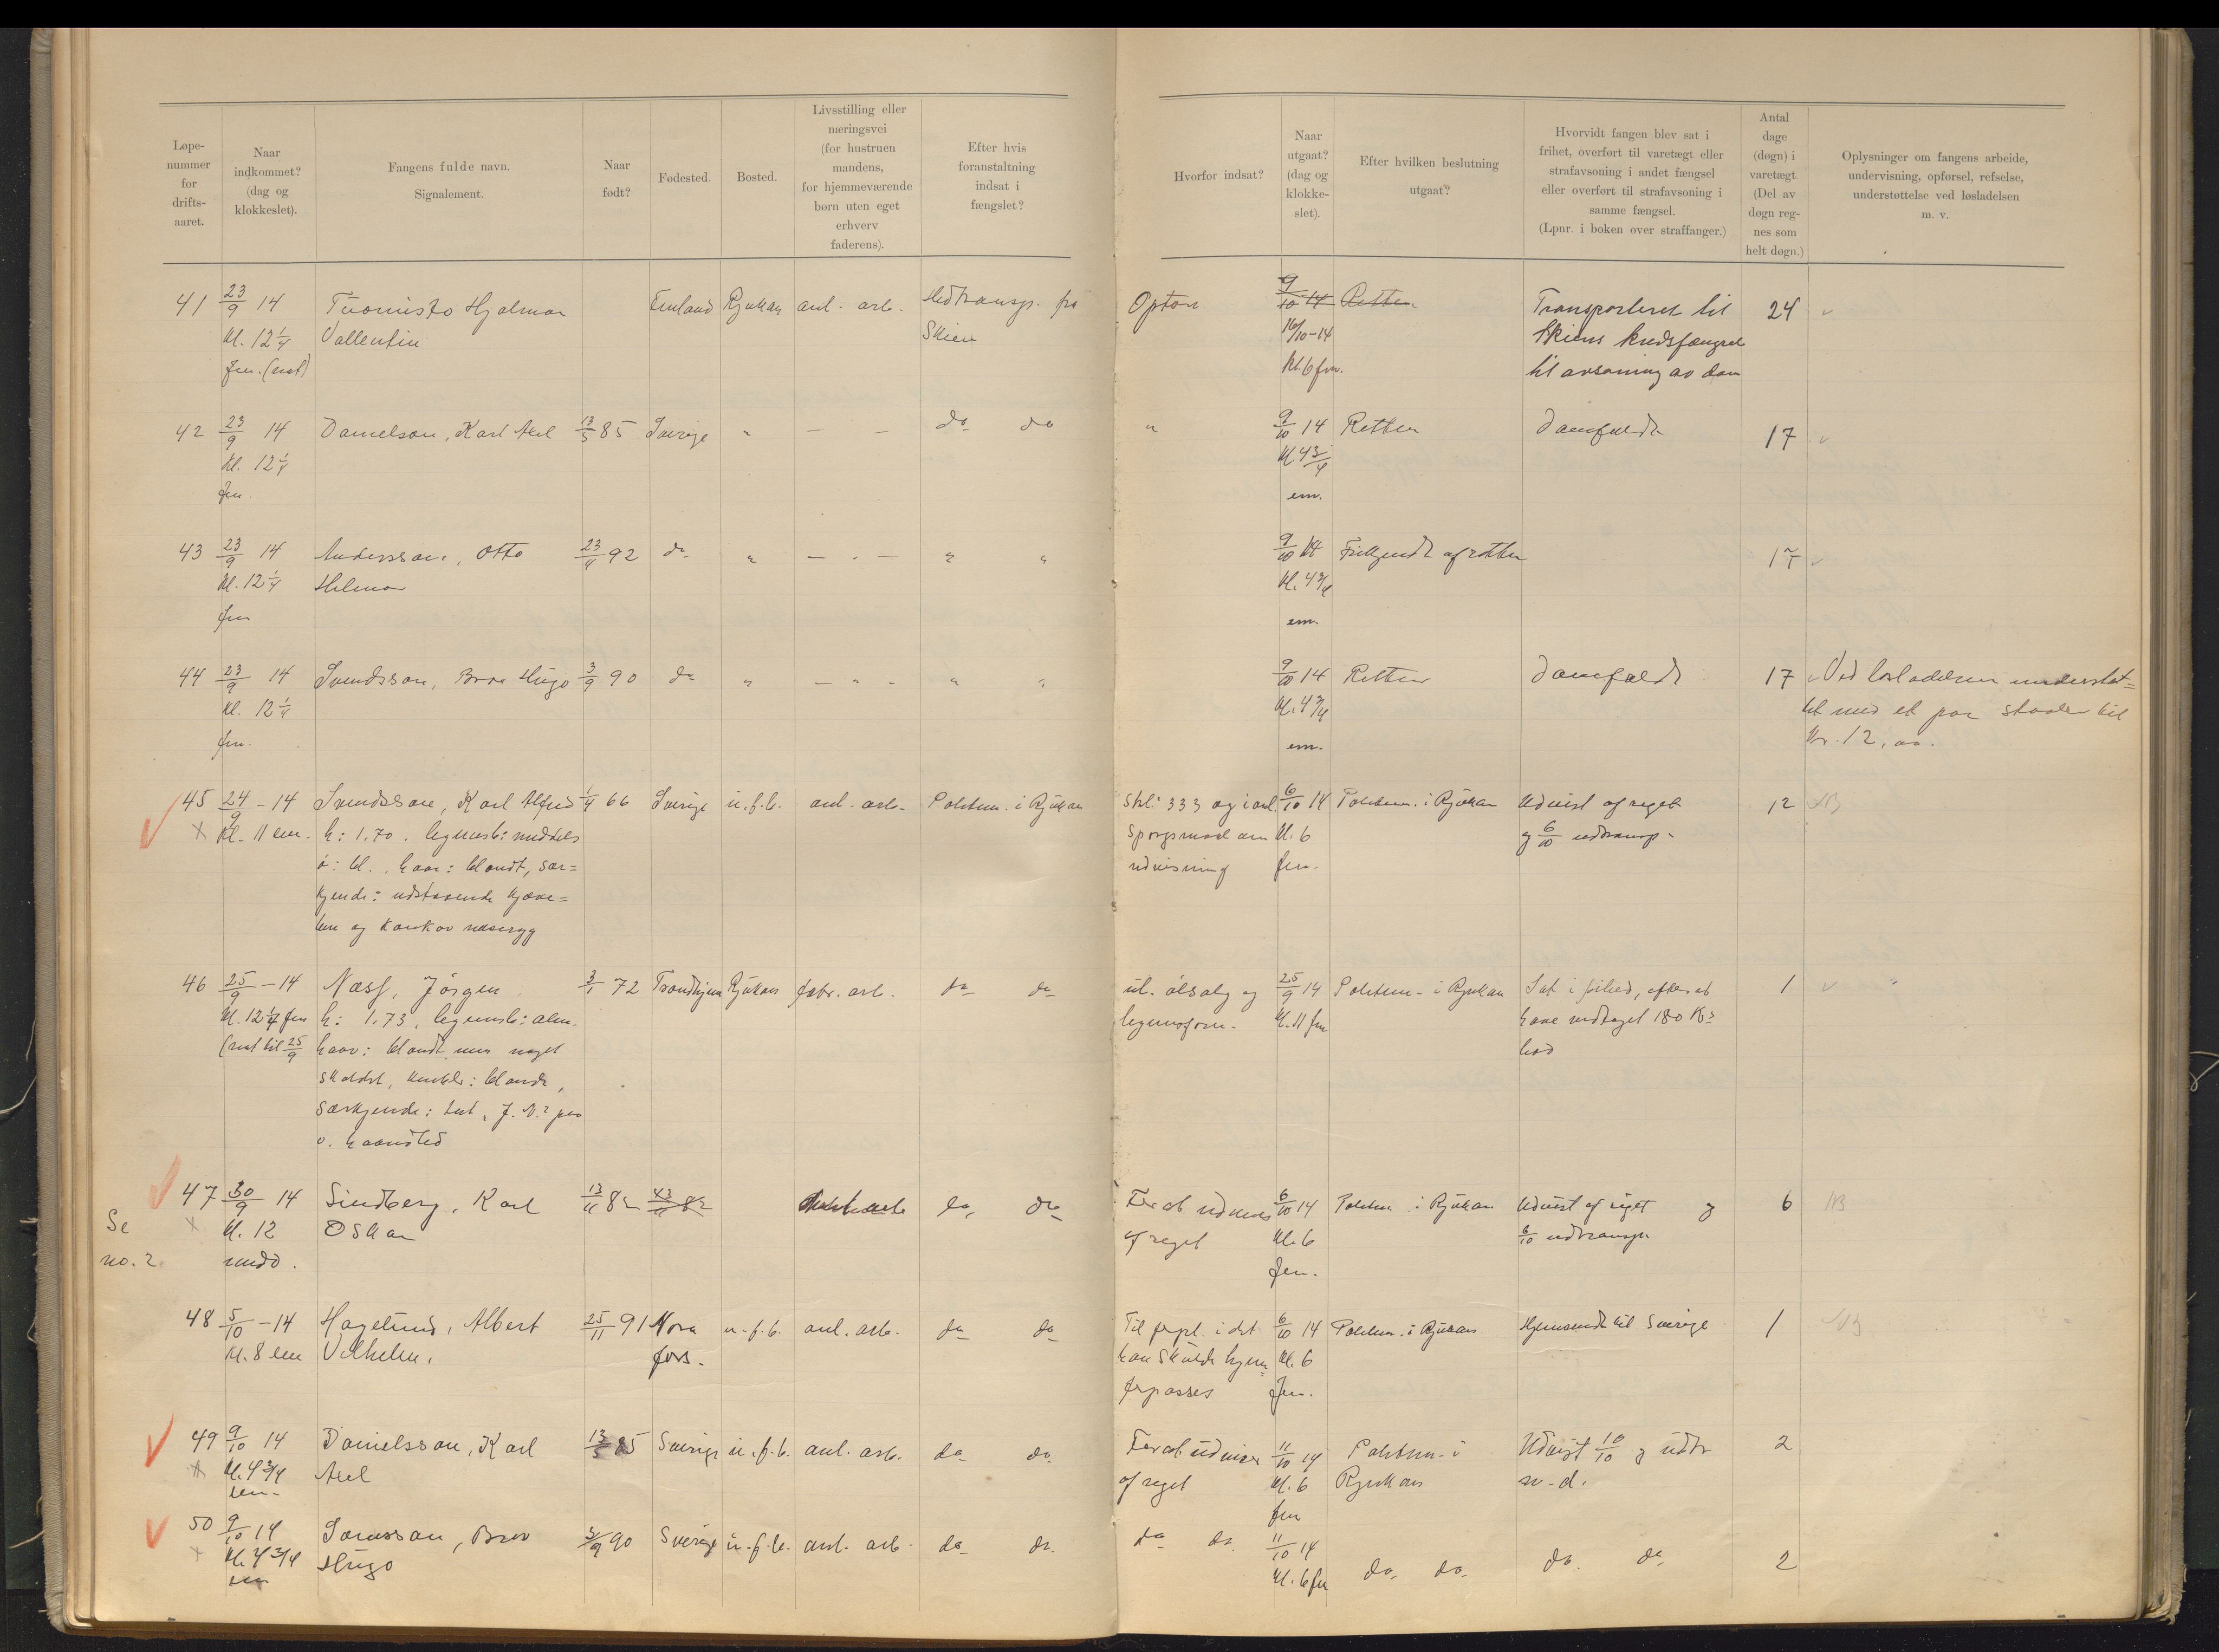 Løpe-
nummer
for
drifts-
aaret.
Naar
indkommet?
(dag og
klokkeslet).
Fangens fulde navn.
Signalement.
Naar
født?
Fødested.
Bosted.
Livsstilling eller
næringsvei
(for hustruen
mandens,
for hjemmeværende
børn uten eget
erhverv
faderens).
Efter hvis
foranstaltning
indsat i
fængslet?
Hvorfor indsat?
Naar
utgaat?
(dag og
klokke-
slet).
Efter hvilken beslutning
utgaat?
Hvorvidt fangen blev sat i
frihet, overført til varetægt eller
strafavsoning i andet fængsel
eller overført til strafavsoning i
samme fængsel.
(Lpnr. i boken over straffanger.)
Antal
dage
(døgn) i
varetægt
(Del av
døgn reg-
nes som
helt døgn.)
Oplysninger om fangens arbeide,
undervisning, opførsel, refselse,
understøttelse ved løsladelsen
m. v.
41 23/9 14 Tuomisto Hjalmar Finland Rjukan anl. arb. Med transp. fra Optøn 9/10 14 Retten Transporteret til 24
Kl. 12 1/4 Vallentin Skien 16/10-14 Skiens kredsfængsel
fm. Kl. 6 fm. til avsoning av dom
42 23/9 14 Danielson, Karl Axel 13/5 85 Sverige " — — do do " 9/10 14 Retten Domfældt 17
Kl. 12 1/4 Kl. 4 3/4
fm. em.
43 23/9 14 Andersson, Otto 23/4 92 do " — " — " " 9/10 14 Frikjendt af retten 17
Kl. 12 1/4 Hilmar Kl. 4 3/4
fm em.
44 23/9 14 Svendsson, Bror Hugo 3/9 90 do " — " - " " 9/10 14 Retten Domfældt 17 Ved løsladelsen understøt=
Kl. 12 1/4 Kl. 4 3/4 tet med et par støvler til
fm. em. Kr. 12,00.
45 24/9 - 14 Svendsson, Karl Alfred 1/4 66 Sverige u.f.b. anl. arb. Politim. i Rjukan Strl: 333 og i anl. 6/10 14 Politim. i Rjukan Udvist af riget 12 NB
x Kl. 11 em. h: 1.70. legemsb: middels spørgsmaal om Kl. 6 og 6/10 udtransp.
ø: bl., haar: blondt, sær= udvisning fm.
kjende: udstaaende kjæve=
ben og konkav næseryg
46 25/9 - 14 Næss, Jørgen 3/1 72 Trondhjem Rjukan fabr. arb. do do ul. ølsalg og 25/9 14 Politim. i Rjukan Sat i frihed, efter at 1
Kl. 12 1/4 fm h: 1.73, legemsb: alm. legemsforn. Kl. 11 fm have vedtaget 180 Kr
(nat til 25/9 haar: blondt men noget bød
skaldet, knebb: blonde,
særkjende: tat. J. N. paa
v. haandled
Se 47 30/9 14 Lindberg, Karl 13/11 82 13/11 82 do do For at udvises 6/10 14 Politim. i Rjukan Udvist af riget og 6 NB
no. 2 x Kl. 12 Oskar af riget Kl. 6 6/10 udtransp.
midd. fm.
48 5/10 - 14 Hagelund, Albert 25/11 91 Mora u.f.b. anl. arb. do do Til forpl. i det 6/10 14 Politim. i Rjukan Hjemsendt til Sverige 1 NB
Kl. 8 em Vilhelm. fors. han skulde hjem= Kl. 6
forpasses fm.
49 9/10 14 Danielsson, Karl 13/5 85 Sverige u.f.b. anl. arb. do do. For at udvises 11/10 14 Politim. i Udvist 10/10 og udtr 2
x Kl. 4 3/4 Axel af riget Kl. 6 Rjukan s. d.
em. fm
50 9/10 14 Bror 3/9 90 Sverige u.f.b. anl. arb. do do. do do. 11/10 14 do. do. do. do 2
x Kl. 4 3/4 Hugo Kl. 6 fm
em